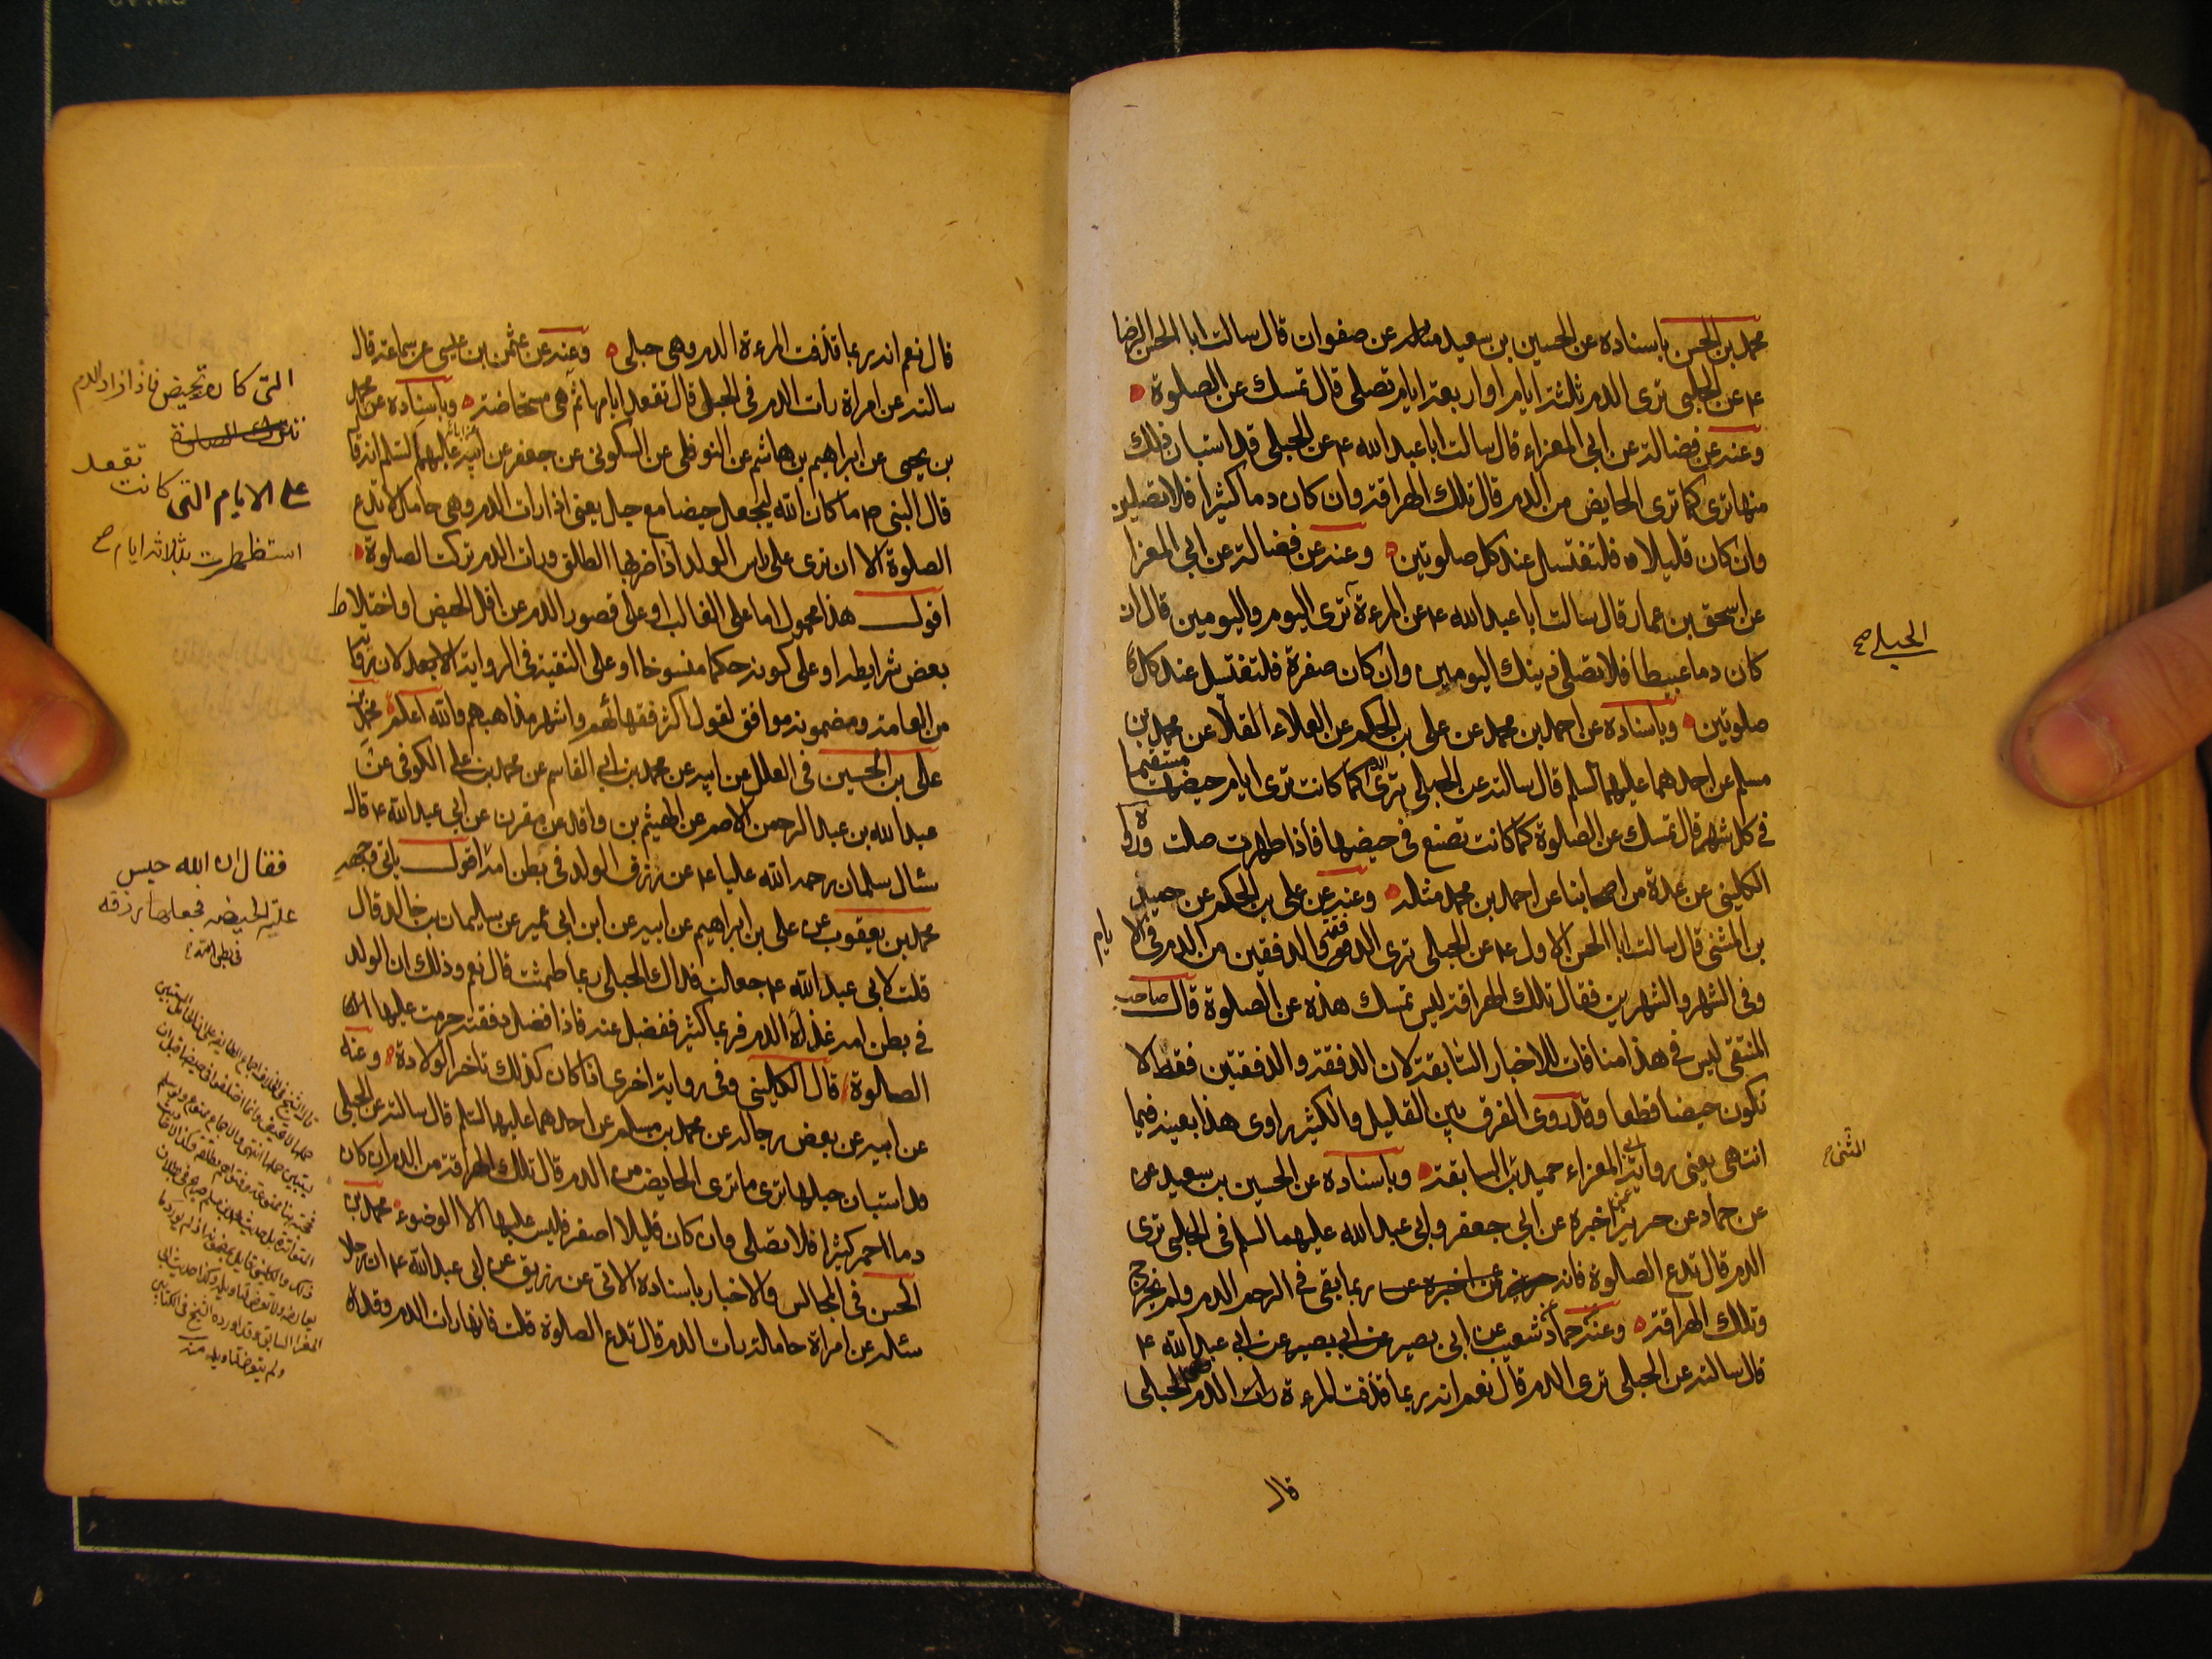 محمد بن الحسن باسناده عن الحسين بن سعيد عن صفوان قال سالت ابا الحسن الرضا
ع عن الحبلى ترى الدم ثلثة ايام او اربعة ايام تصلى قال تمسك عن الصلوة
وعنه عن فضالة عن ابى المغزاء قال سالت ابا عبد الله ع عن الحبلى قد استبان ذلك
منها ترى كما ترى الحايض من الدم قال تلك الهراقة وان كان دما كثيرا فلا تصلين
وان كان قليلا فلتغتسل عند كل صلوتين وعنه عن فضالة عن ابى المغزا
عن اسحق بن عمار قال سالت ابا عبد الله ع عن المرءة ترى اليوم واليومين قال ان
كان دما عبيطا فلا تصلى ذينك اليومين وان كان صفرة فلتغتسل عند كل
صلوتين وباسناده عن احمد بن محمد عن على بن الحكم عن العلاء القلا عن محمد بن
مسلم عن احدهما عليهما السلم قال سالته عن الحبلى ترى الدم كما كانت ترى ايام حيضها مستقيما
فى كل شهر قال تمسك عن الصلوة كما كانت تصنع فى حيضها فاذا طهرت صلت ورواه
الكلينى عن عدة من اصحابنا عن احمد بن محمد مثله وعنه عن على بن الحكم عن حميد
بن المثنى قال سالت ابا الحسن الاول ع عن الحبلى ترى الدفقة والدفقتين من الدم فى الايام
وفى الشهر والشهرين فقال تلك الهراقة ليس تمسك هذه عن الصلوة قال صاحب
المنتقى ليس فى هذا منافات للاخبار السابقة لان الدفقة والدفقتين فقط لا
تكون حيضا قطعا وقد روى الفرق بين القليل والكثير راوى هذا بعينه فيما
انتهى يعنى رواية ابى المغزاء حميد السابقة وباسناده عن الحسين بن سعيد عن
عن حماد عن حريز عمن اخبره عن ابى جعفر وابى عبد الله عليهما السلم فى الحبلى ترى
الدم قال تدع الصلوة فانه ربما بقى فى الرحم الدم ولم يخرج
وتلك الهراقة وعنه عن حماد عن شعيب عن ابى بصير عن ابى عبد الله ع
قال سالته عن الحبلى ترى الدم قال نعم انه ربما قذفت المرءة رات الدم الحبلى
قال
الحبلى صح
المثنى ح
قال نعم انه ربما قذفت المرءة الدم وهى حبلى وعنه عن عثمن بن عيسى عن سماعة قال
سالته عن امراة رات الدم فى الحبل قال تقعد ايامها ثم هى مستحاضة وباسناده عن محمد
بن يحيى عن ابراهيم بن هاشم عن النوفلى عن السكونى عن جعفر عن ابيه عليهما السلم انه قا
قال النبى ص ما كان الله ليجعل حيضا مع حبل يعنى اذا رات الدم وهى حامل لا تدع
الصلوة الا ان ترى على راس الولد اذا ضربها الطلق ورات الدم تركت الصلوة
اقول هذا محمول اما على الغالب او على قصور الدم عن اقل الحيض او اختلاط
بعض شرايطه او على كونه حكما منسوخا او على التقية فى الرواية
من العامة ومضمونه موافق لقول اكثر فقهائهم واشهر مذاهبهم والله اعلم محمد بن
على بن الحسين فى العلل عن ابيه عن محمد بن ابى القاسم عن محمد بن على الكوفى عن
عبد الله بن عبد الرحمن الاصم عن الهيثم بن واقد عن مقرن عن ابى عبد الله ع قال
سال سلمان رحمه الله عليا ع عن رزق الولد فى بطن امه اقول ياتى وجهه
محمد بن يعقوب عن على بن ابراهيم عن ابيه عن ابن ابى عمير عن سليمان بن خالد قال
قلت لابى عبد الله ع جعلت فداك الحبلى ربما طمثت قال نعم وذلك ان الولد
فى بطن امه غذاه الدم فربما كثر ففضل عنه فاذا فضل دفقته حرمت عليها
الصلوة قال الكلينى وفى رواية اخرى اذا كان كذلك تاخر الولادة وعنه
عن ابيه عن بعض رجاله عن محمد بن مسلم عن احدهما عليهما السلم قال سالته عن الحبلى
قد استبان حبلها ترى ما ترى الحايض من الدم قال تلك الهراقة من الدم ان كان
دما احمر كثيرا فلا تصلى وان كان قليلا اصفر فليس عليها الا الوضوء محمد بن
الحسن فى المجالس والاخبار باسناده الاتى عن رزيق عن ابى عبد الله ع ان رجلا
سئله عن امراة حاملة رات الدم قال تدع الصلوة قلت فانها رات الدم وقد
التى كانت تحيض فاذا زاد الدم
تقعد
على الايام التى كانت
استظهرت بثلاثة ايام صح
فقال ان الله حبس
عليه الحيضة فجعلها رزقه
فى بطن امه